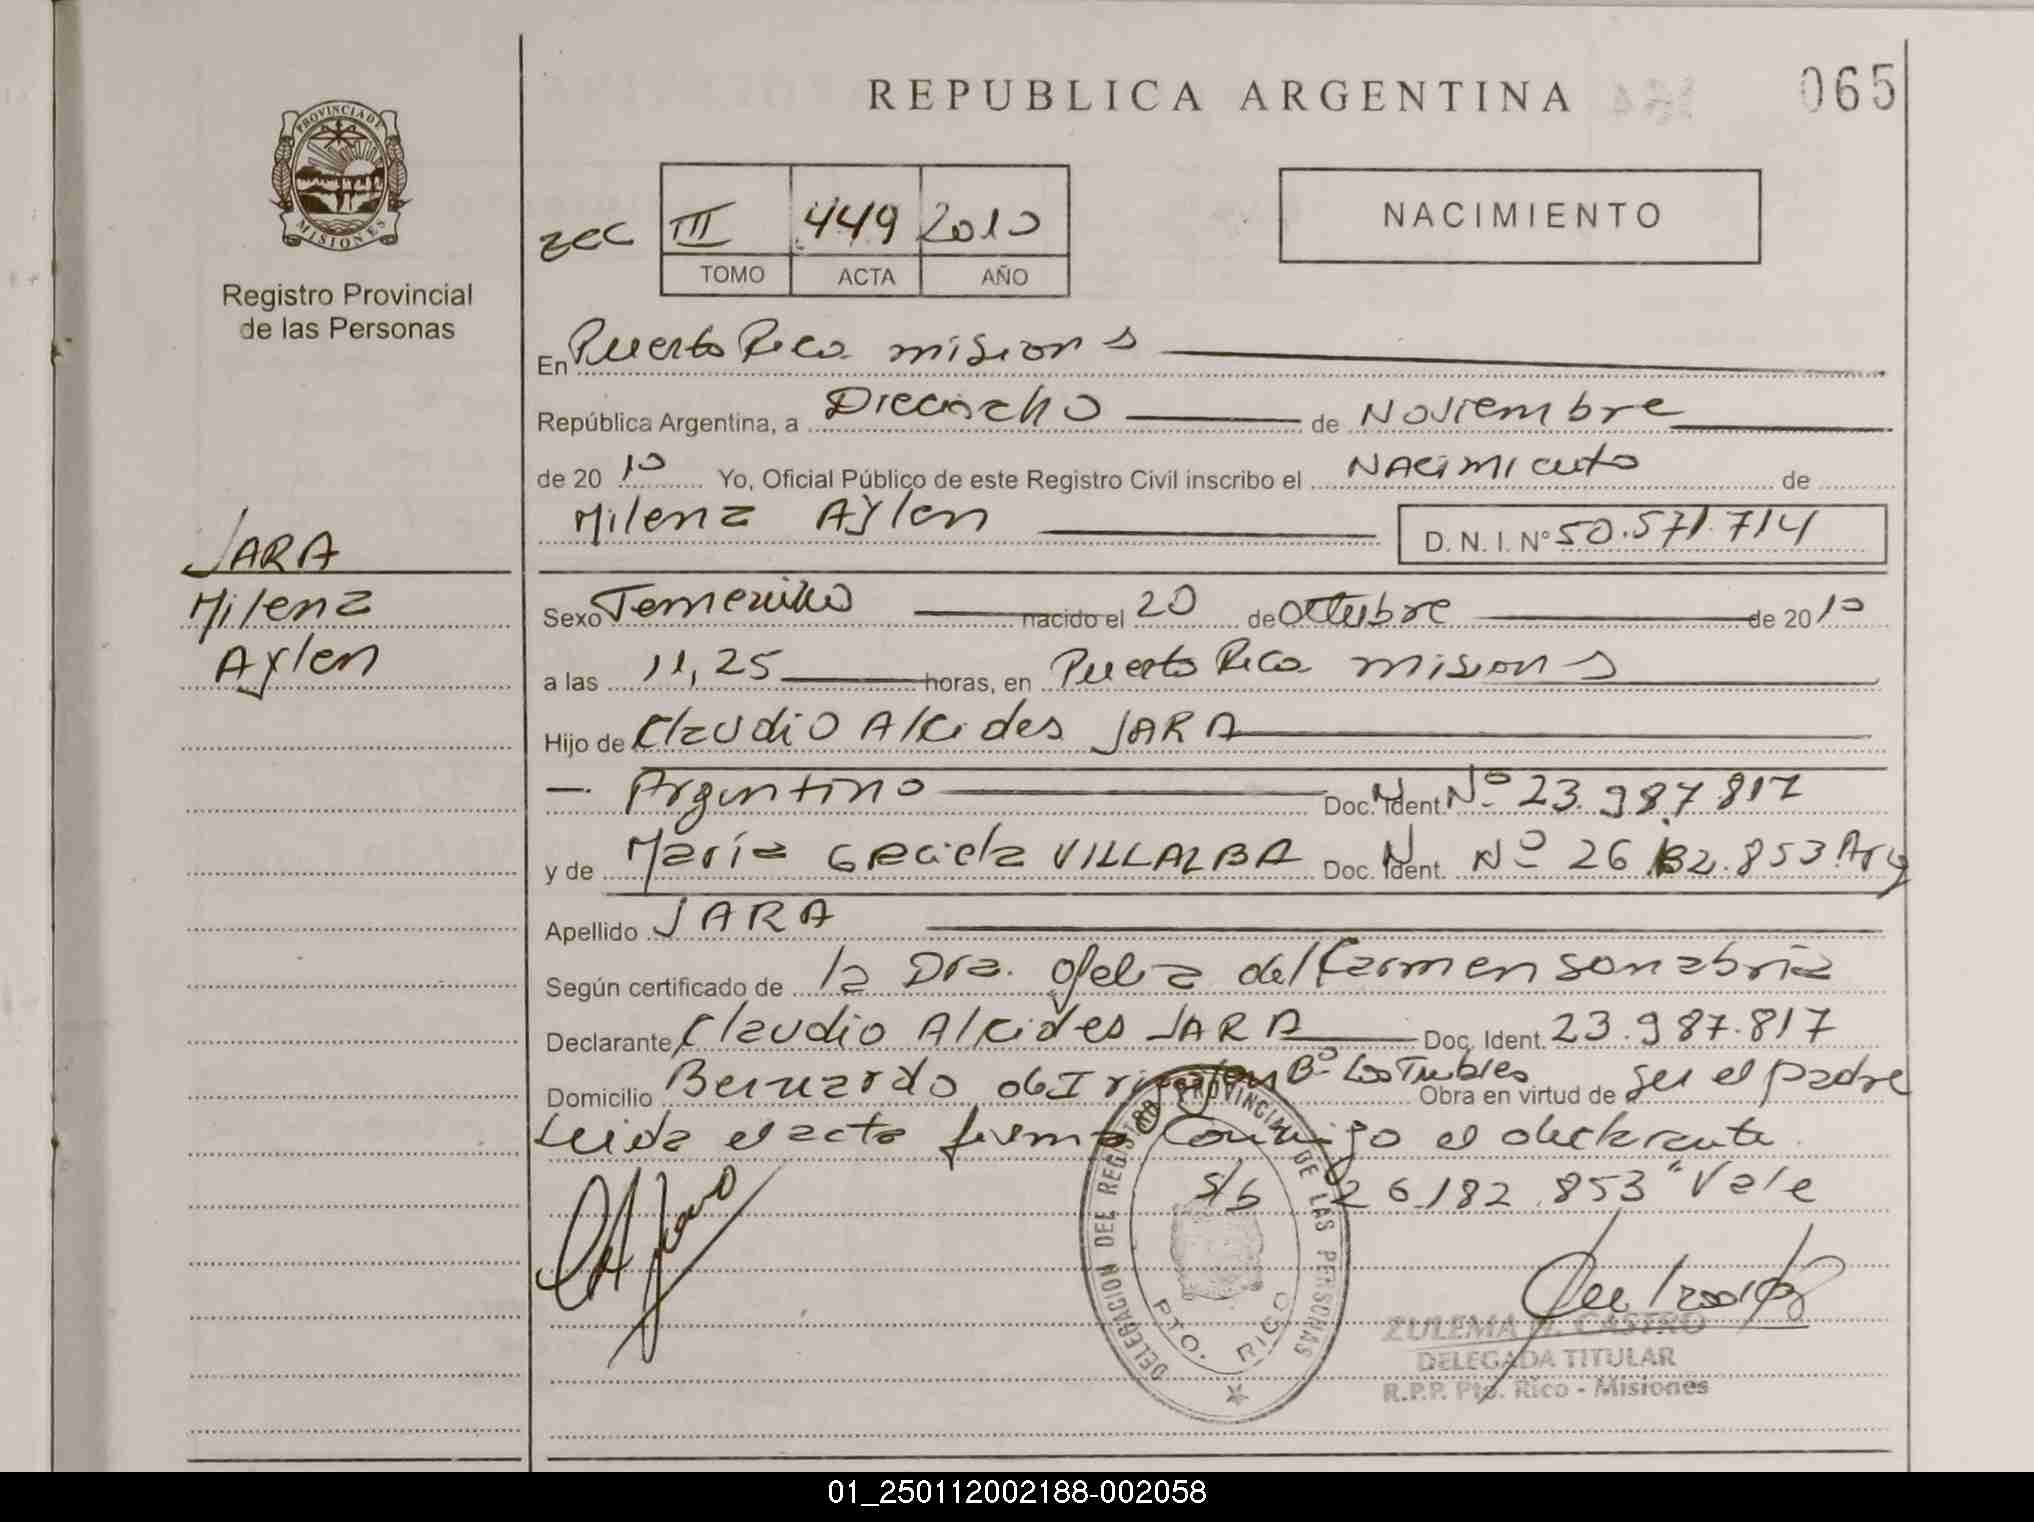 REPUBLICA ARGENTINA
065
PROVINCIA DE
MISIONES
Registro Provincial
de las Personas
III 449 2010
TOMO ACTA AÑO
NACIMIENTO
En Puerto Rico misiones
República Argentina, a Dieciocho de Noviembre
de 2010 Yo, Oficial Público de este Registro Civil inscribo el Nacimiento de
Milena Aylen D. N. I. Nº 50.571.714
JARA
Milena
Aylen
Sexo Femenino nacido el 20 de Octubre de 2010
a las 11,25 horas, en Puerto Rico misiones
Hijo de Claudio Alcides JARA
Argentino Doc. N Ident. Nº 23.987.817
y de María Graciela VILLALBA Doc. N Ident. Nº 26 182.853 Arg
Apellido JARA
Según certificado de la Dra. Ofelia del Carmen Sanabria
Declarante Claudio Alcides JARA Doc. Ident. 23.987.817
Domicilio Bernardo de Irigoyen Bº Los Obra en virtud de ser el padre
Leida el acta firma Conmigo el declarante
s/b 26.182.853 "Vale
DELEGACION DEL REGISTRO PROVINCIAL DE LAS PERSONAS
PTO. RICO
ZULEMA CASTRO
DELEGADA TITULAR
R.P.P. Pto. Rico - Misiones
01_250112002188-002058